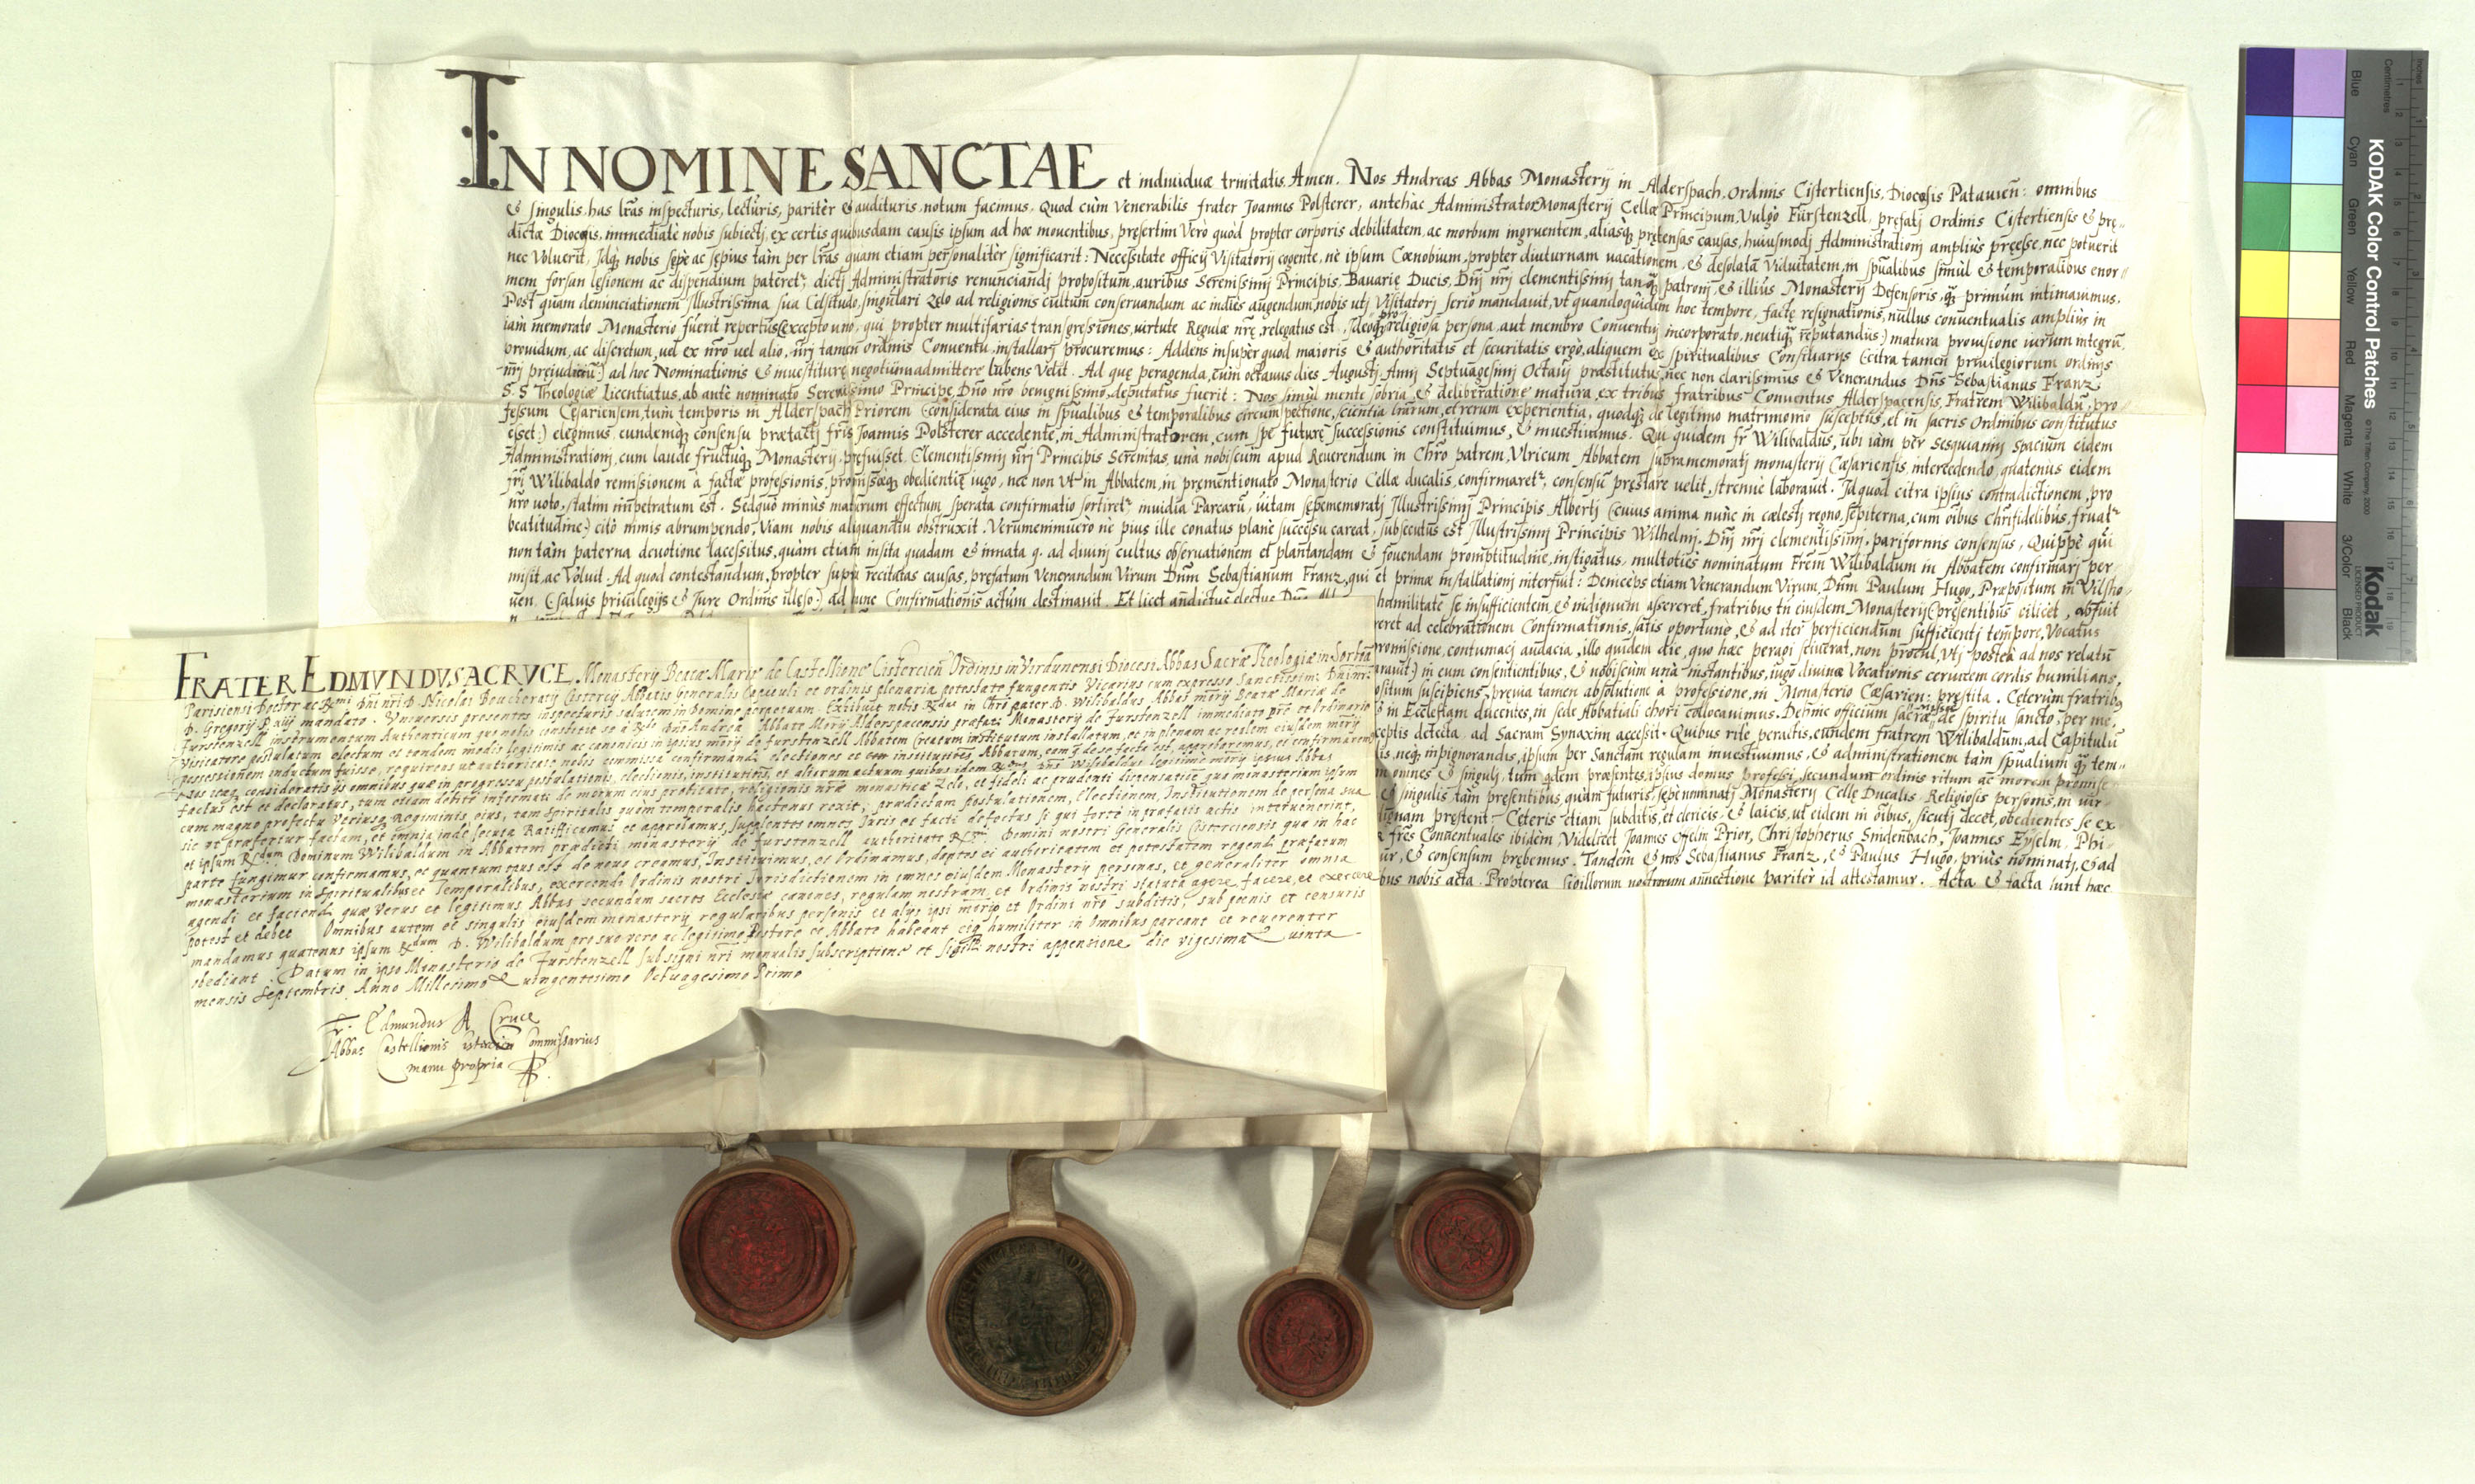 IN NOMINE SANCTAE et indiuiduæ trinitatis. Amen. Nos Andreas Abbas Monasterij in Alderspach, Ordinis Cistertiensis, Diocæsis Patauieñ: omnibus
& singulis has lr̃as inspecturis, lecturis, paritèr & audituris, notum facimus. Quod cùm Venerabilis frater Joannes Polsterer, antehàc Administrator Monasterij Cellæ Principum, Vulgò Fürstenzell, prefatj Ordinis Cistertiensis & prę-
dictæ Diocęsis, immediatè nobis subiectj, ex certis quibusdam causis ipsum ad hoc mouentibus, presertim Verò quòd propter corporis debilitatem, ac morbum ingruentem, aliasq; prętensas causas, huiusmodj Administrationj ampliùs pręesse, nec potuerit
nec Voluerit, Jdq; nobis sępe ac sępius tàm per lr̃as quam etiam personalitèr significarit: Necessitate officij Visitatorij cogente, nè ipsum Cœnobium, propter diuturnam uacationem, & desolatã Viduitatem, in spũalibus simùl & temporalibus enor-
mem forsan lęsionem ac dispendium pateretr, dictj Administratoris renunciandj propositum, auribus Serenissimj Principis, Bauarię Ducis, Dñj nr̃j clementissimj tanq̃ patronj, & illius Monasterij Defensoris, q̃ primùm intimauimus.
Post quam denunciationem Jllustrissima sua Celsitudo, singularj zelo ad religionis cultum conseruandum ac indies augendum, nobis utj Visitatorj seriò mandauit, vt quandoquidem hoc tempore, factę resignationis, nullus conuentualis ampliùs in
iàm memorato Monasterio fuerit repertus (excepto uno, qui propter multifarias transgressiones, uirtute Regulæ nr̃ę, relegatus est, ideoq; pro religiosa persona, aut membro Conuentuj incorporato, neutiq̃ reputandus:) matura prouisione uirum integrũ,
prouidum, ac discretum, uel ex nr̃o uel alio, nr̃j tamen ordinis Conuentu, installarj procuremus: Addens insupèr quod maioris & authoritatis et securitatis ergò, aliquem ex spiritualibus Consiliarijs (citra tamen priuilegiorum ordinis
nr̃j preiudiciũ:) ad hoc Nominationis & inuestiturę negotium admittere lubens Velit. Ad quę peragenda, cùm octauus dies Augustj Annj Septuagesimj Octauj præstitutus, nec non clarissimus & Venerandus Dñs Sebastianus Franz
S. S. Theologiæ Licentiatus, ab antè nominato Serenissimo Principe, Dño nr̃o benignissimo, deputatus fuerit: Nos simùl mente sobria, & deliberatione matura, ex tribus fratribus Conuentus Alderspacensis, Fratrem Wilibaldũ, pro-
fessum Cęsariensem, tùm temporis in Alderspach Priorem (considerata eius in spũalibus & temporalibus circumspectione, scientia lr̃arum, et rerum experientia, quodq; de legitimo matrimonio susceptus, et in sacris Ordinibus constitutus
esset:) elegimus, eundemq; consensu prætactj fr̃is Joannis Polsterer accedente, in Administratorem, cum spe futurę successionis constituimus, & inuestiuimus. Qui quidem fr̃ Wilibaldus, ubi iàm per Sesquiannj spacium eidem
Administrationj, cum laude fructuq; Monasterij, pręfuisset, Clementissimj nr̃j Principis Serenitas, unà nobiscum apud Reuerendum in Chr̃o patrem, Vlricum Abbatem supramemoratj monasterij Cæsariensis, intercedendo, quatenus eidem
fr̃j Wilibaldo remissionem à factæ professionis, promissæq; obedientię iugo, nec non vt in Abbatem, in prementionato Monasterio Cellæ ducalis, confirmaretr, consensũ pręstare uelit, strenuè laborauit. Jdquod citra ipsius contradictionem, pro
nr̃o uoto, statim impetratum est. Sed quò minùs maturum effectum sperata confirmatio sortiretr inuidia Parcarũ, uitam sępememoratj Jllustrissimj Principis Albertj (cuius anima nùnc in cælestj regno, sępiterna, cum oĩbus Chr̃ifidelibus, fruatr
beatitudine:) citò nimis abrumpendo, Viam nobis aliquandiu obstruxit. Verumenimuerò nè pius ille conatus planè successu careat, subsecutus est Jllustrissimj Principis Wilhelmj, Dñj nr̃j clementissimj, pariformis consensus, Quippè quì
non tàm paterna deuotione lacessitus, quàm etiam insita quadam & innata q. ad diuinj cultus obseruationem et plantandam & fouendam promptitudine, instigatus, multotiès nominatum Frẽm Wilibaldum in Abbatem confirmarj per-
misit, ac Voluit. Ad quod contestandum, propter supra recitatas causas, prefatum Venerandum Virum Dñm Sebastianum Franz, qui et primæ installationj interfuit: Deinceps etiam Venerandum Virum, Dñm Paulum Hugo, Præpositum in Vilsho-
uen (saluis priuilegijs & Jure Ordinis illęso:) ad hunc Confirmationis actum destinauit. Et licet
humilitate se insufficientem, & indignum assereret, fratribus tñ eiusdem Monasterij (presentibus cilicet, obfuit
ad celebrationem Confirmationis, satis oportunè, & ad iter perficiendum sufficientj tempore, Vocatus
promissione, contumacj audacia, illo quidem die, quo hæc peragi sciuerat, non procul, vtj posteà ad nos relatũ
in eum consentientibus, & nobiscum unà instantibus, iugo diuinæ Vocationis ceruicem cordis humilians,
suscipiens, pręuia tamen absolutione à professione, in Monasterio Cæsarien: pręstita. Ceterùm fratribq
in Ecclesiam ducentes, in sede Abbatiali chori collocauimus. Dehinc officium sacræ missæ de spiritu sancto, per me,
detecta, ad Sacram Synaxim accessit. Quibus ritè peractis, eundem fratrem Wilibaldum, ad Capitulũ
neq; inpignorandis, ipsum per Sanctam regulam inuestiuimus, & administrationem tàm spũalium q̃ tem-
omnes & singulj, tum qdem præsentes, ipsius domus professi, secundum ordinis ritum ac morem premisse
& singulis tàm presentibus, quàm futuris, sępenominatj Monasterij Cellę Ducalis, Religiosis personis, in uir-
prestent. Ceteris etiam subditis, et clericis & laicis, ut eidem in oĩbus, sicutj decet, obedientes se ex-
fr̃es Conuentuales ibidèm, Videlicet Joannes Offelm Prior, Christopherus Smidenbach, Joannes Eyselm, Phi-
& consensum prębemus. Tandem & nos Sebastianus Franz, & Paulus Hugo, priùs nominatj, & ad
nobis acta. Propterea sigillorum nostrorum annectione paritèr id attestamur. Acta & facta sunt hæc
FRATER EDMVNDVS A CRVCE Monasterij Beatæ Mariæ de Castellione Cistercieñ Ordinis in Virdunensi Diocesi Abbas Sacræ Theologiæ in
Parisiensi Doctor ac Rmi Dñi nr̃i D. Nicolai Boucherat Cistercij Abbatis Generalis Capituli et ordinis plenaria potestate fungentis Vicarius cum expresso Sanctissimi Dñi nr̃i
D. Gregorij P. xiij mandato. Vniuersis presentes inspecturis salutem in Domino perpetuam. Exhibuit nobis Rdus in Chr̃o pater D. Wilibaldus Abbas mõrij Beatæ Mariæ de
Furstenzell instrumentum Authenticum quo nobis constitit se à Rdo Dño Andrea Abbate Mõrij Alderspacensis præfati Monasterij de Furstenzell immediato pr̃e et Ordinario
Visitatore postulatum electum et eundem modis legitimis ac canonicis in ipsius mõrij de Furstenzell Abbatem Creatum institutum installatum, et in plenam ac realem eiusdem mõrij
possessionem inductum fuisse, requirens ut authoritate nobis commissa confirmandi electiones et institutiões Abbatum, eamq; de se factã est, approbaremus, et confirmaremus
Nos itaq; consideratis ijs omnibus quæ in progressu postulationis, electionis, institutiõis, et aliarum actuum quibus idem Rdus Dñs Wilibaldus legitimè mõrij ipsius Abbas
factus est et declaratus, tum etiam debitè informati de morum eius probitate, religionis nr̃æ monasticæ Zelo, et fideli ac prudenti dispensatiõe qua monasterium ipsum
cum magno profectu Verusq; Regiminis eius, tam spiritalis quam temporalis hactenus rexit, prædictam postulationem, Electionem, Institutionem de persona sua
sic ut præfertur factam, et omnia inde secuta Ratifficamus et approbamus, supplentes omnes Juris et facti defectus si qui fortè in præfatis actis interuenerint,
et ipsum Rdum Dominum Wilibaldum in Abbatem prædicti monasterij de Furstenzell authoritate Rmi Domini nostri Generalis Cisterciensis qua in hac
parte fungimur confirmamus, et quantum opus est de nouo creamus, Instituimus, et Ordinamus, dantes ei authoritatem et potestatem regendi præfatum
monasterium in Spiritualibus et Temporalibus, exercendi Ordinis nostri Jurisdictionem in omnes eiusdem Monasterij personas, et generaliter omnia
agendi et faciendi quæ Verus et legitimus Abbas secundum sacros Ecclesiæ canones, regulam nostram, et Ordinis nostri statuta agere, facere, et exercere
potest et debet. Omnibus autem et singulis eiusdem monasterij regularibus personis et alijs ipsi mõrio et Ordini nr̃o subditis, sub poenis et censuris
mandamus quatenus ipsum Rdum D. Wilibaldum pro suo vero ac legitimo Pastore et Abbate habeant eiq; humiliter in Omnibus pareant et reuerenter
obediant. Datum in ipso Monasterio de Furstenzell sub signi nr̃i manualis subscriptione et sigilli nostri appensione die vigesima Quinta
mensis Septembris Anno Millesimo Quingentesimo Octuagesimo Primo
Fr. Edmundus A Cruce
Abbas Castellionis Commissarius
manu propria
KODAK Color Control Patches
© The Tiffen Company, 2000
Kodak
LICENSED PRODUCT
Inches
Centimetres
Blue
Cyan
Green
Yellow
Red
Magenta
White
3/Color
Black